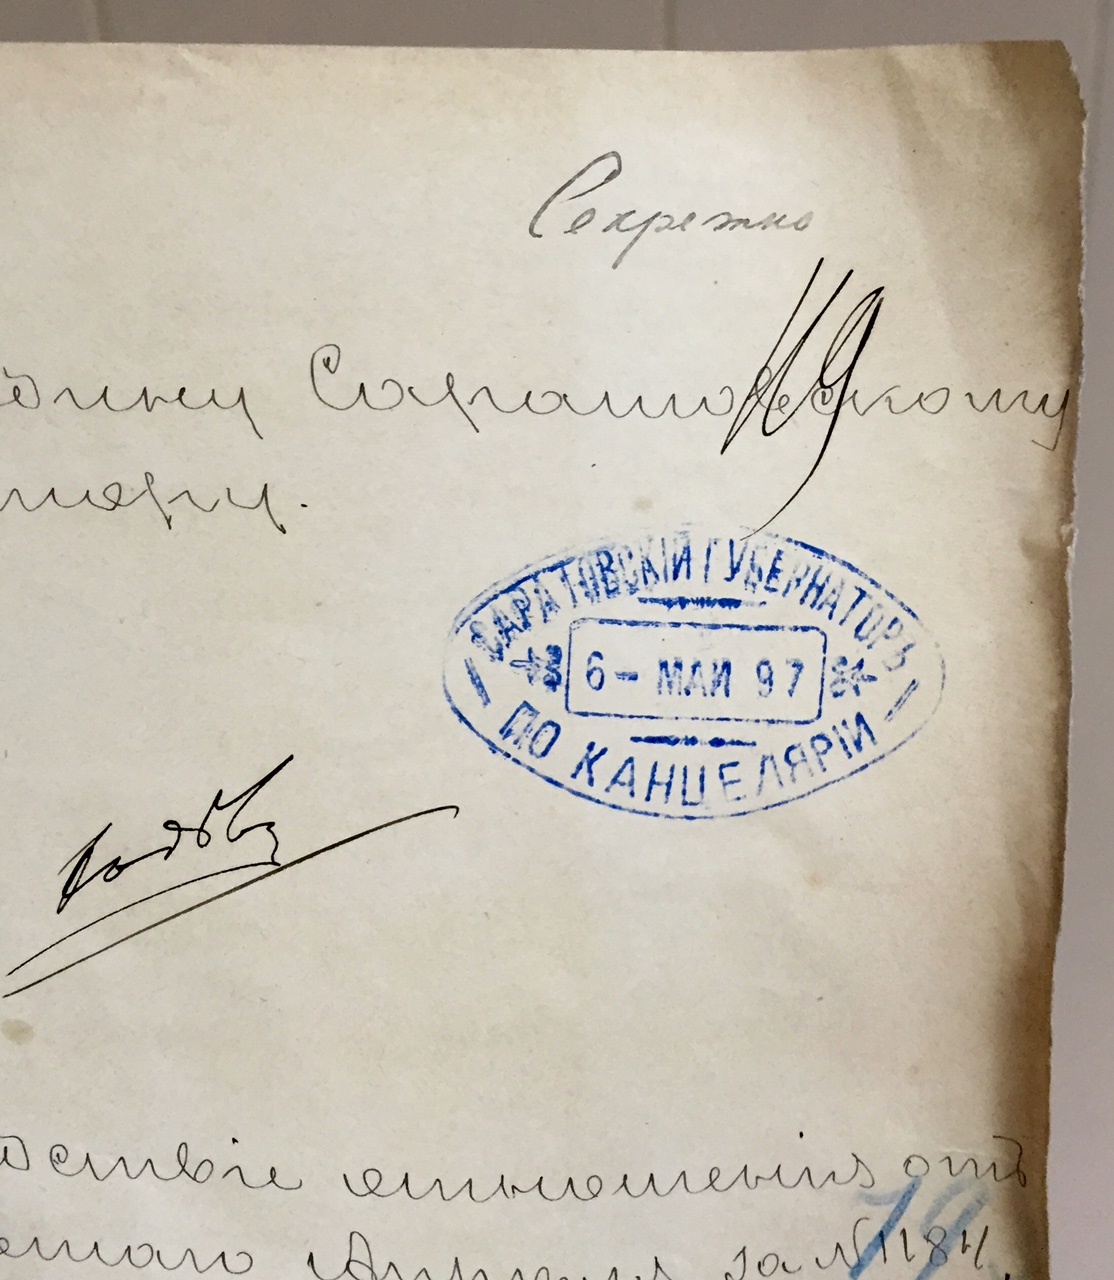 Секретно
дину Саратовскому
тору.
САРАТОВСКІЙ ГУБЕРНАТОРЪ
6 - МАИ 97
ПО КАНЦЕЛЯРІИ
дствіе отношенія отъ
Апрѣля за № 1184,
19